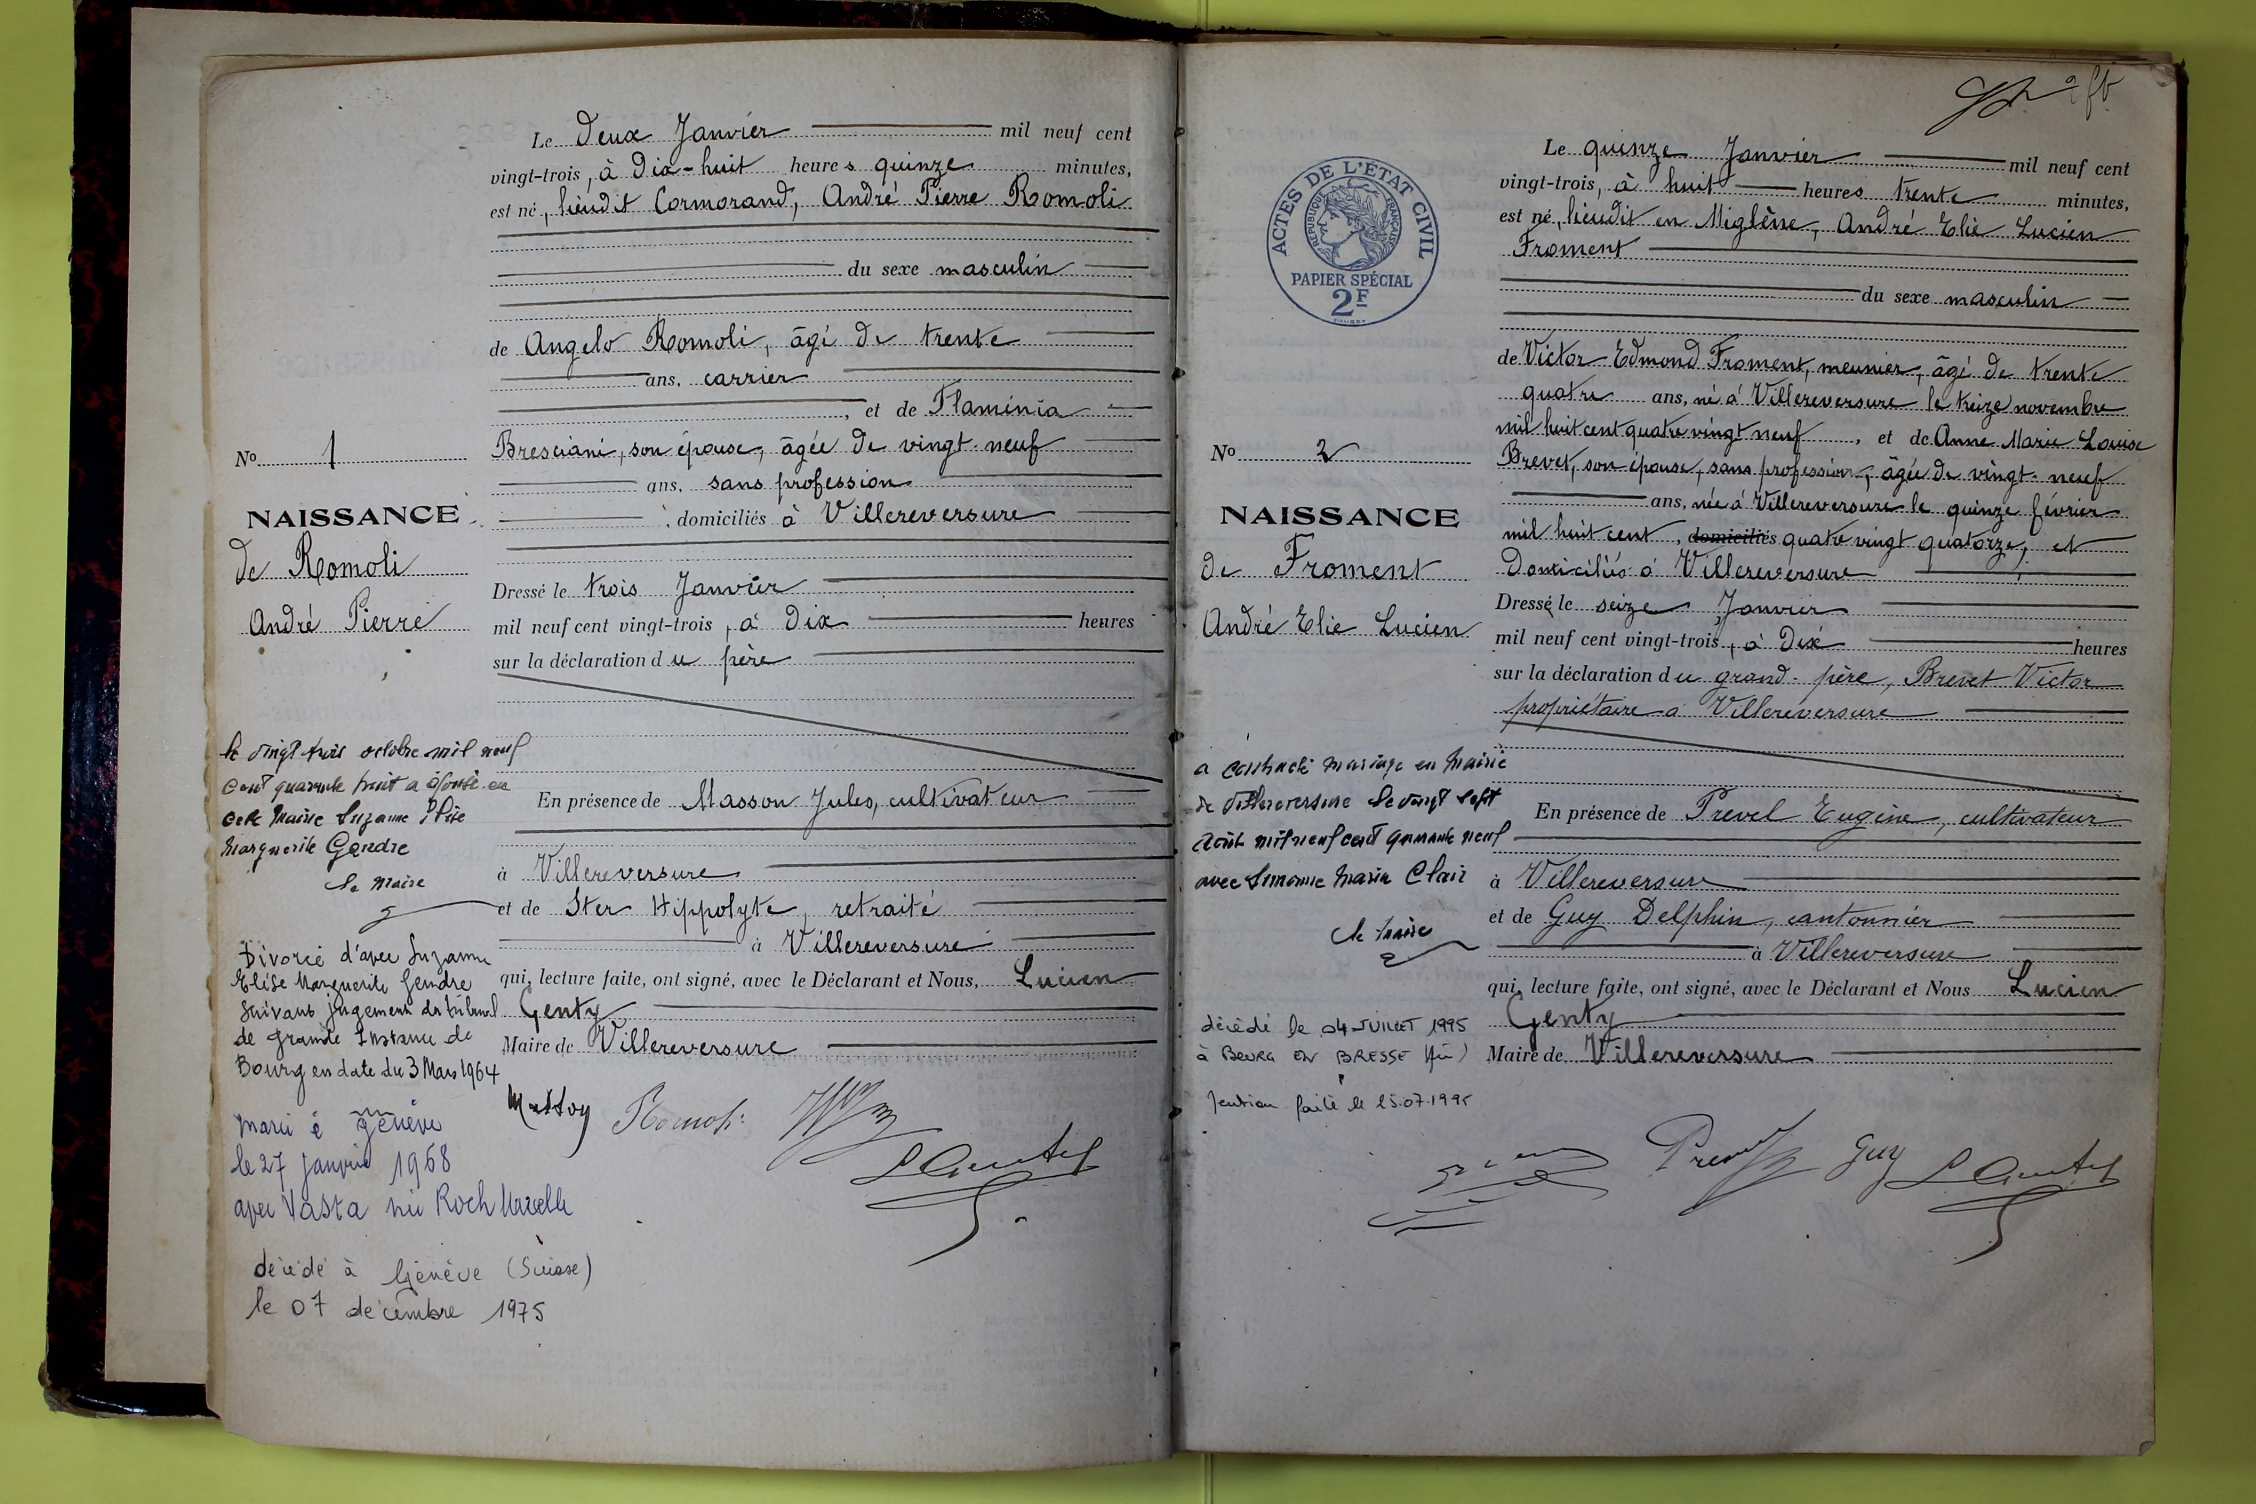 Le Deux Janvier mil neuf cent
vingt-trois, à Dix-huit heures quinze minutes,
est né, lieudit Cormorand, André Pierre Romoli
du sexe masculin
de Angelo Romoli, âgé de trente
ans, carrier
, et de Flaminia
Bresciani, son épouse, âgée de vingt-neuf
ans, sans profession
, domiciliés à Villereversure
Dressé le trois Janvier
mil neuf cent vingt-trois, à Dix heures
sur la déclaration du père
En présence de Masson Jules, cultivateur
à Villereversure
et de Ster Hippolyte, retraité
à Villereversure
qui, lecture faite, ont signé, avec le Déclarant et Nous, Lucien
Genty
Maire de Villereversure
Romoli
No 1
NAISSANCE
de Romoli
André Pierre
le vingt trois octobre mil neuf
cent quarante huit a épousé en
cette mairie Suzanne Elise
Marguerite Gendre
Le Maire
Divorcé d'avec Suzanne
Elise Marguerite Gendre
suivant jugement du tribunal
de grande Instance de
Bourg en date du 3 Mars 1964
marié à Genève
le 27 janvier 1968
avec Vasta née Roch
décédé à Genève (Suisse)
le 07 décembre 1975
Le quinze Janvier mil neuf cent
vingt-trois, à huit heures trente minutes,
est né, lieudit en Miglène, André Elie Lucien
Froment
du sexe masculin
de Victor Edmond Froment, meunier, âgé de trente
quatre ans, né à Villereversure le treize novembre
mil huit cent quatre vingt neuf, et de Anne Marie Louise
Brevet, son épouse, sans profession, âgée de vingt-neuf
ans, née à Villereversure le quinze février
mil huit cent, domiciliés quatre vingt quatorze, et
Domiciliés à Villereversure
Dressé le seize Janvier
mil neuf cent vingt-trois, à Dix heures
sur la déclaration du grand-père, Brevet Victor
propriétaire à Villereversure
En présence de Prevel Eugène, cultivateur
à Villereversure
et de Guy Delphin, cantonnier
à Villereversure
qui, lecture faite, ont signé, avec le Déclarant et Nous Lucien
Genty
Maire de Villereversure
Guy
ACTES DE L'ÉTAT CIVIL
RÉPUBLIQUE FRANÇAISE
PAPIER SPÉCIAL
2F
No 2
NAISSANCE
de Froment
André Elie Lucien
a contracté mariage en mairie
de Villereversure le vingt sept
août mil neuf cent quarante neuf
avec Simonne Marie Clair
le maire
décédé le 04 JUILLET 1995
à BOURG EN BRESSE (Ain)
mention faite le 25.07.1995